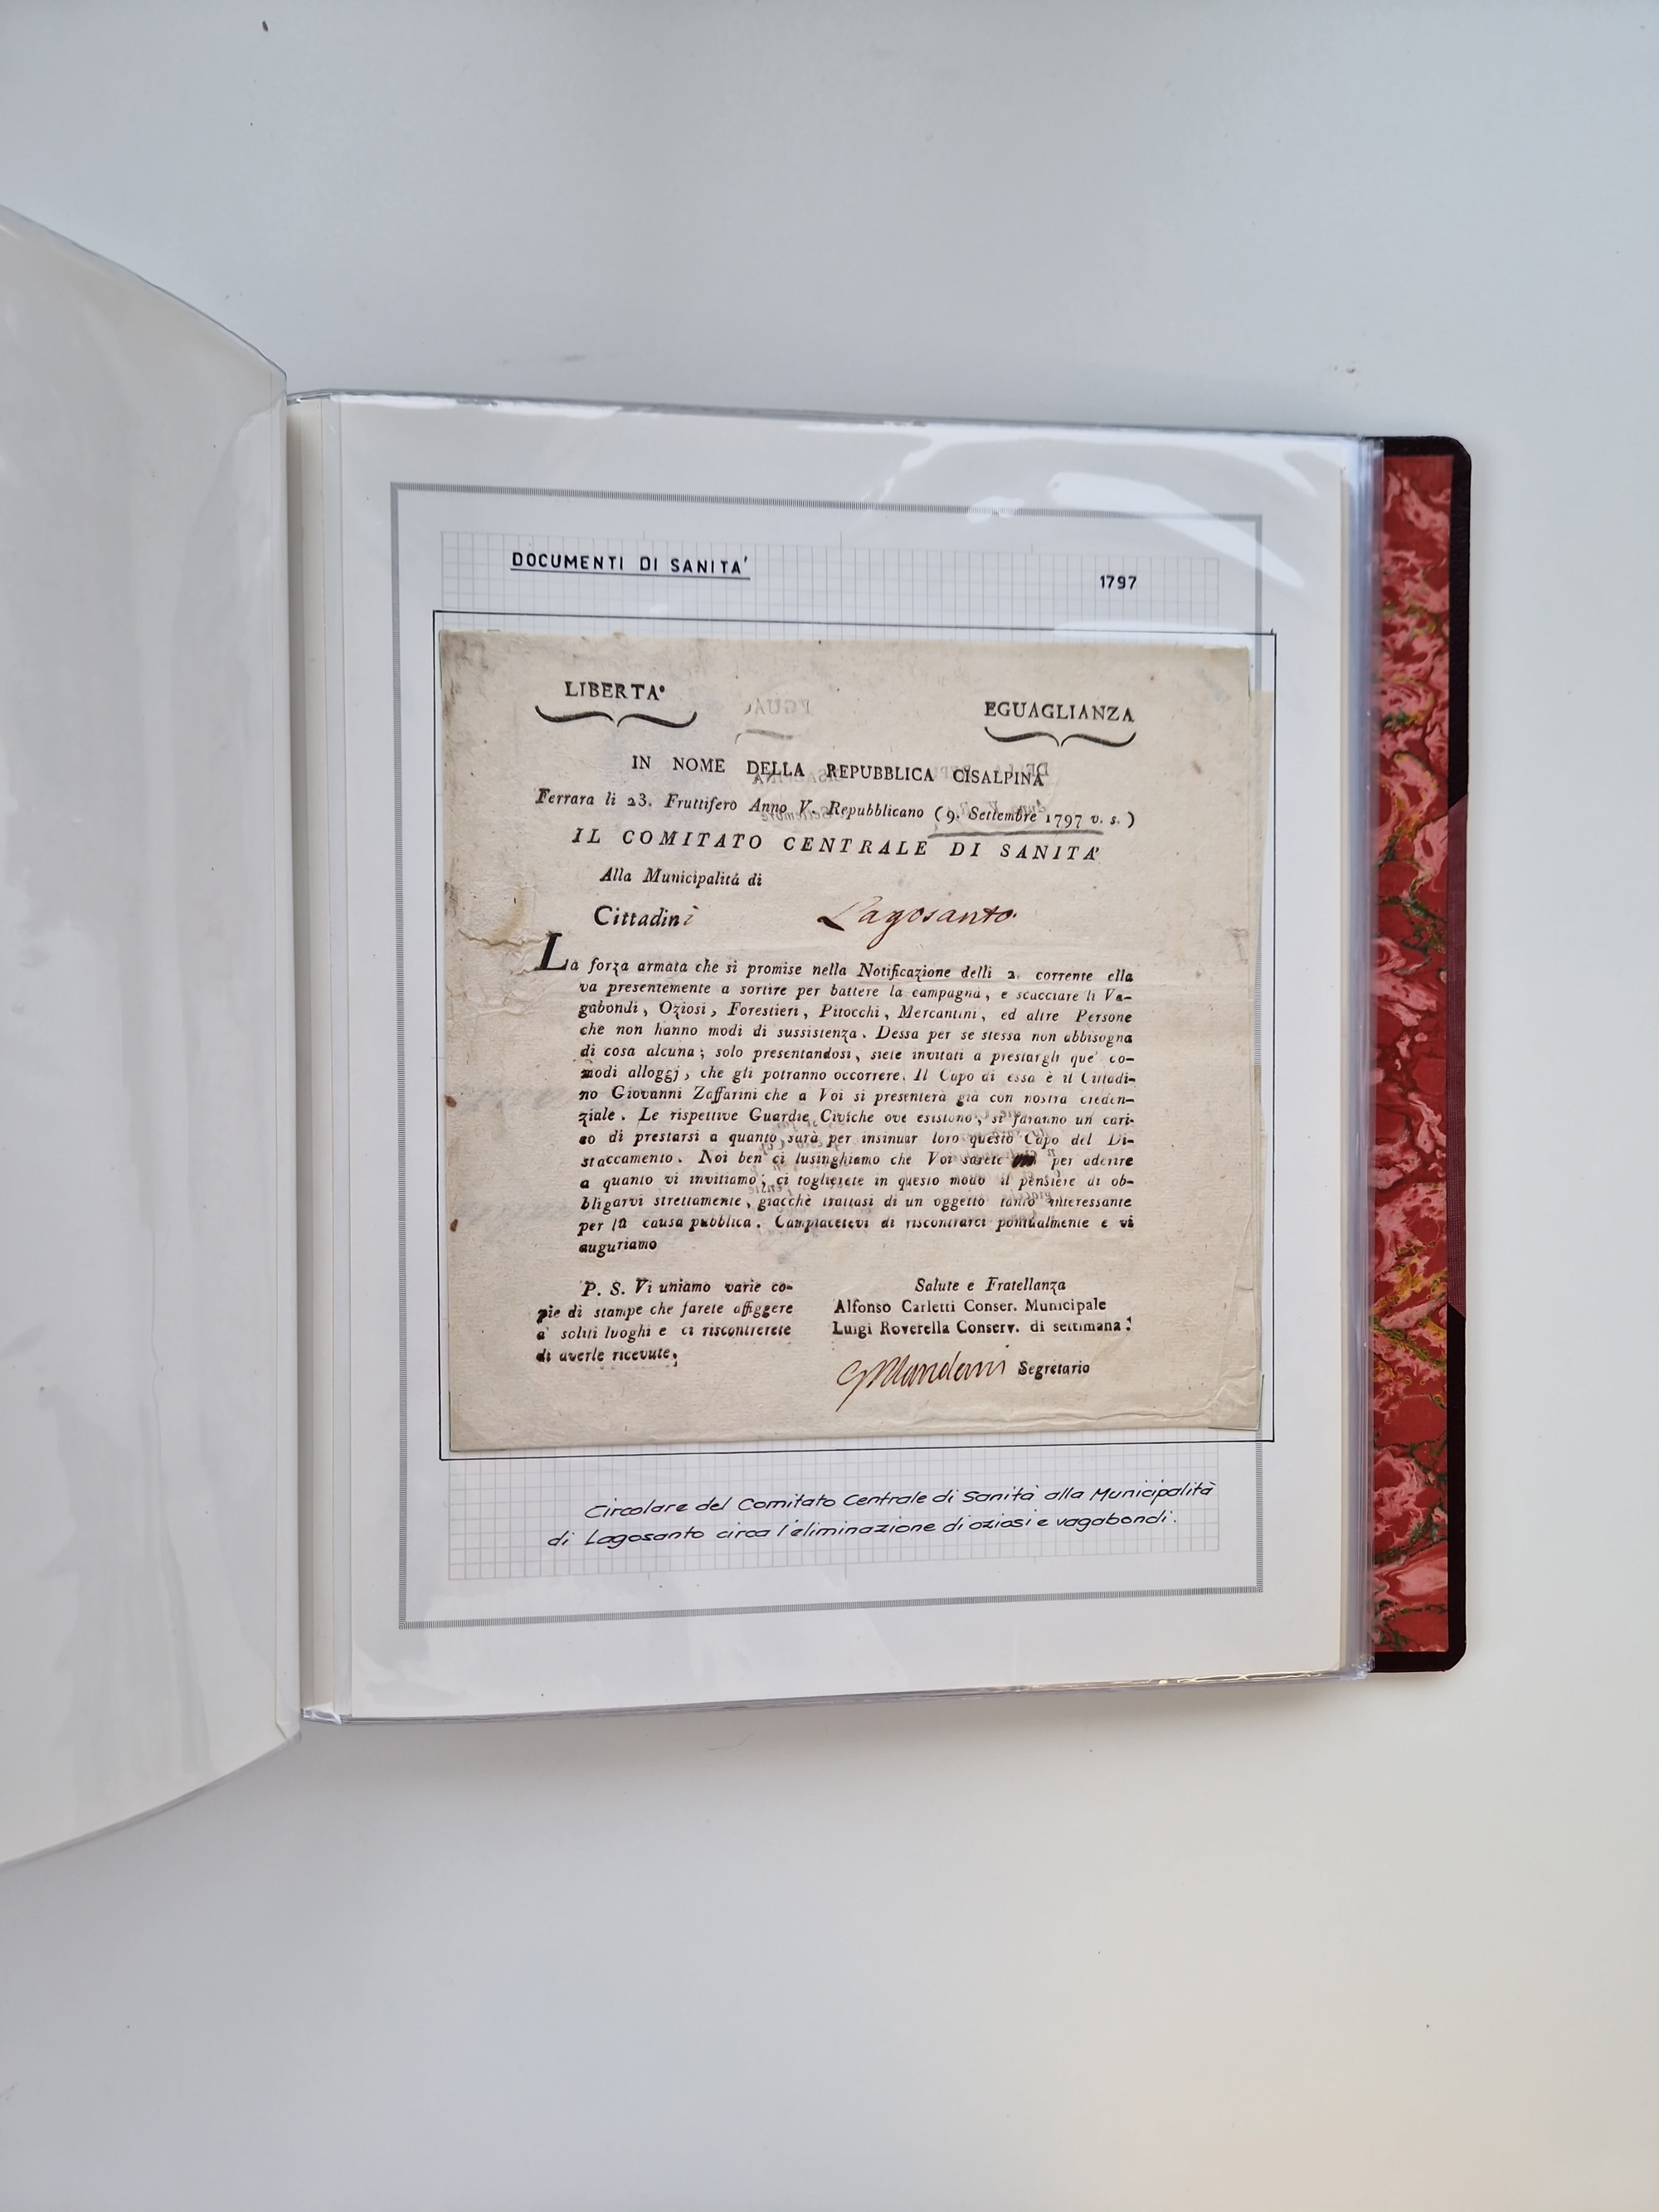 DOCUMENTI DI SANITA'
1797
LIBERTA'
EGUAGLIANZA
IN NOME DELLA REPUBBLICA CISALPINA
Ferrara li 23. Fruttifero Anno V. Repubblicano (9. Settembre 1797 v. s.)
IL COMITATO CENTRALE DI SANITA'
Alla Municipalitá di
Cittadini Lagosanto.
La forza armata che si promise nella Notificazione delli 2. corrente ella
va presentemente a sortire per battere la campagna, e scacciare li Va-
gabondi, Oziosi, Forestieri, Pitocchi, Mercantini, ed altre Persone
che non hanno modi di sussistenza. Dessa per se stessa non abbisogna
di cosa alcuna; solo presentandosi, siete invitati a prestargli que' co-
modi alloggj, che gli potranno occorrere. Il Capo di essa è il Cittadi-
no Giovanni Zaffarini che a Voi si presenterà già con nostra creden-
ziale. Le rispettive Guardie Civiche ove esistono, si faranno un cari-
co di prestarsi a quanto sarà per insinuar loro questo Capo del Di-
staccamento. Noi ben ci lusinghiamo che Voi sarete per aderire
a quanto vi invitiamo; ci toglierete in questo modo il pensiere di ob-
bligarvi strettamente, giacchè trattasi di un oggetto tanto interessante
per la causa pubblica. Campiacetevi di riscontrarci pontualmente e vi
auguriamo
P. S. Vi uniamo varie co-
pie di stampe che farete affiggere
a' soliti luoghi e ci riscontrerete
di averle ricevute.
Salute e Fratellanza
Alfonso Carletti Conser. Municipale
Luigi Roverella Conserv. di settimana:
Segretario
Circolare del Comitato Centrale di Sanità alla Municipalità
di Lagosanto circa l'eliminazione di oziosi e vagabondi.